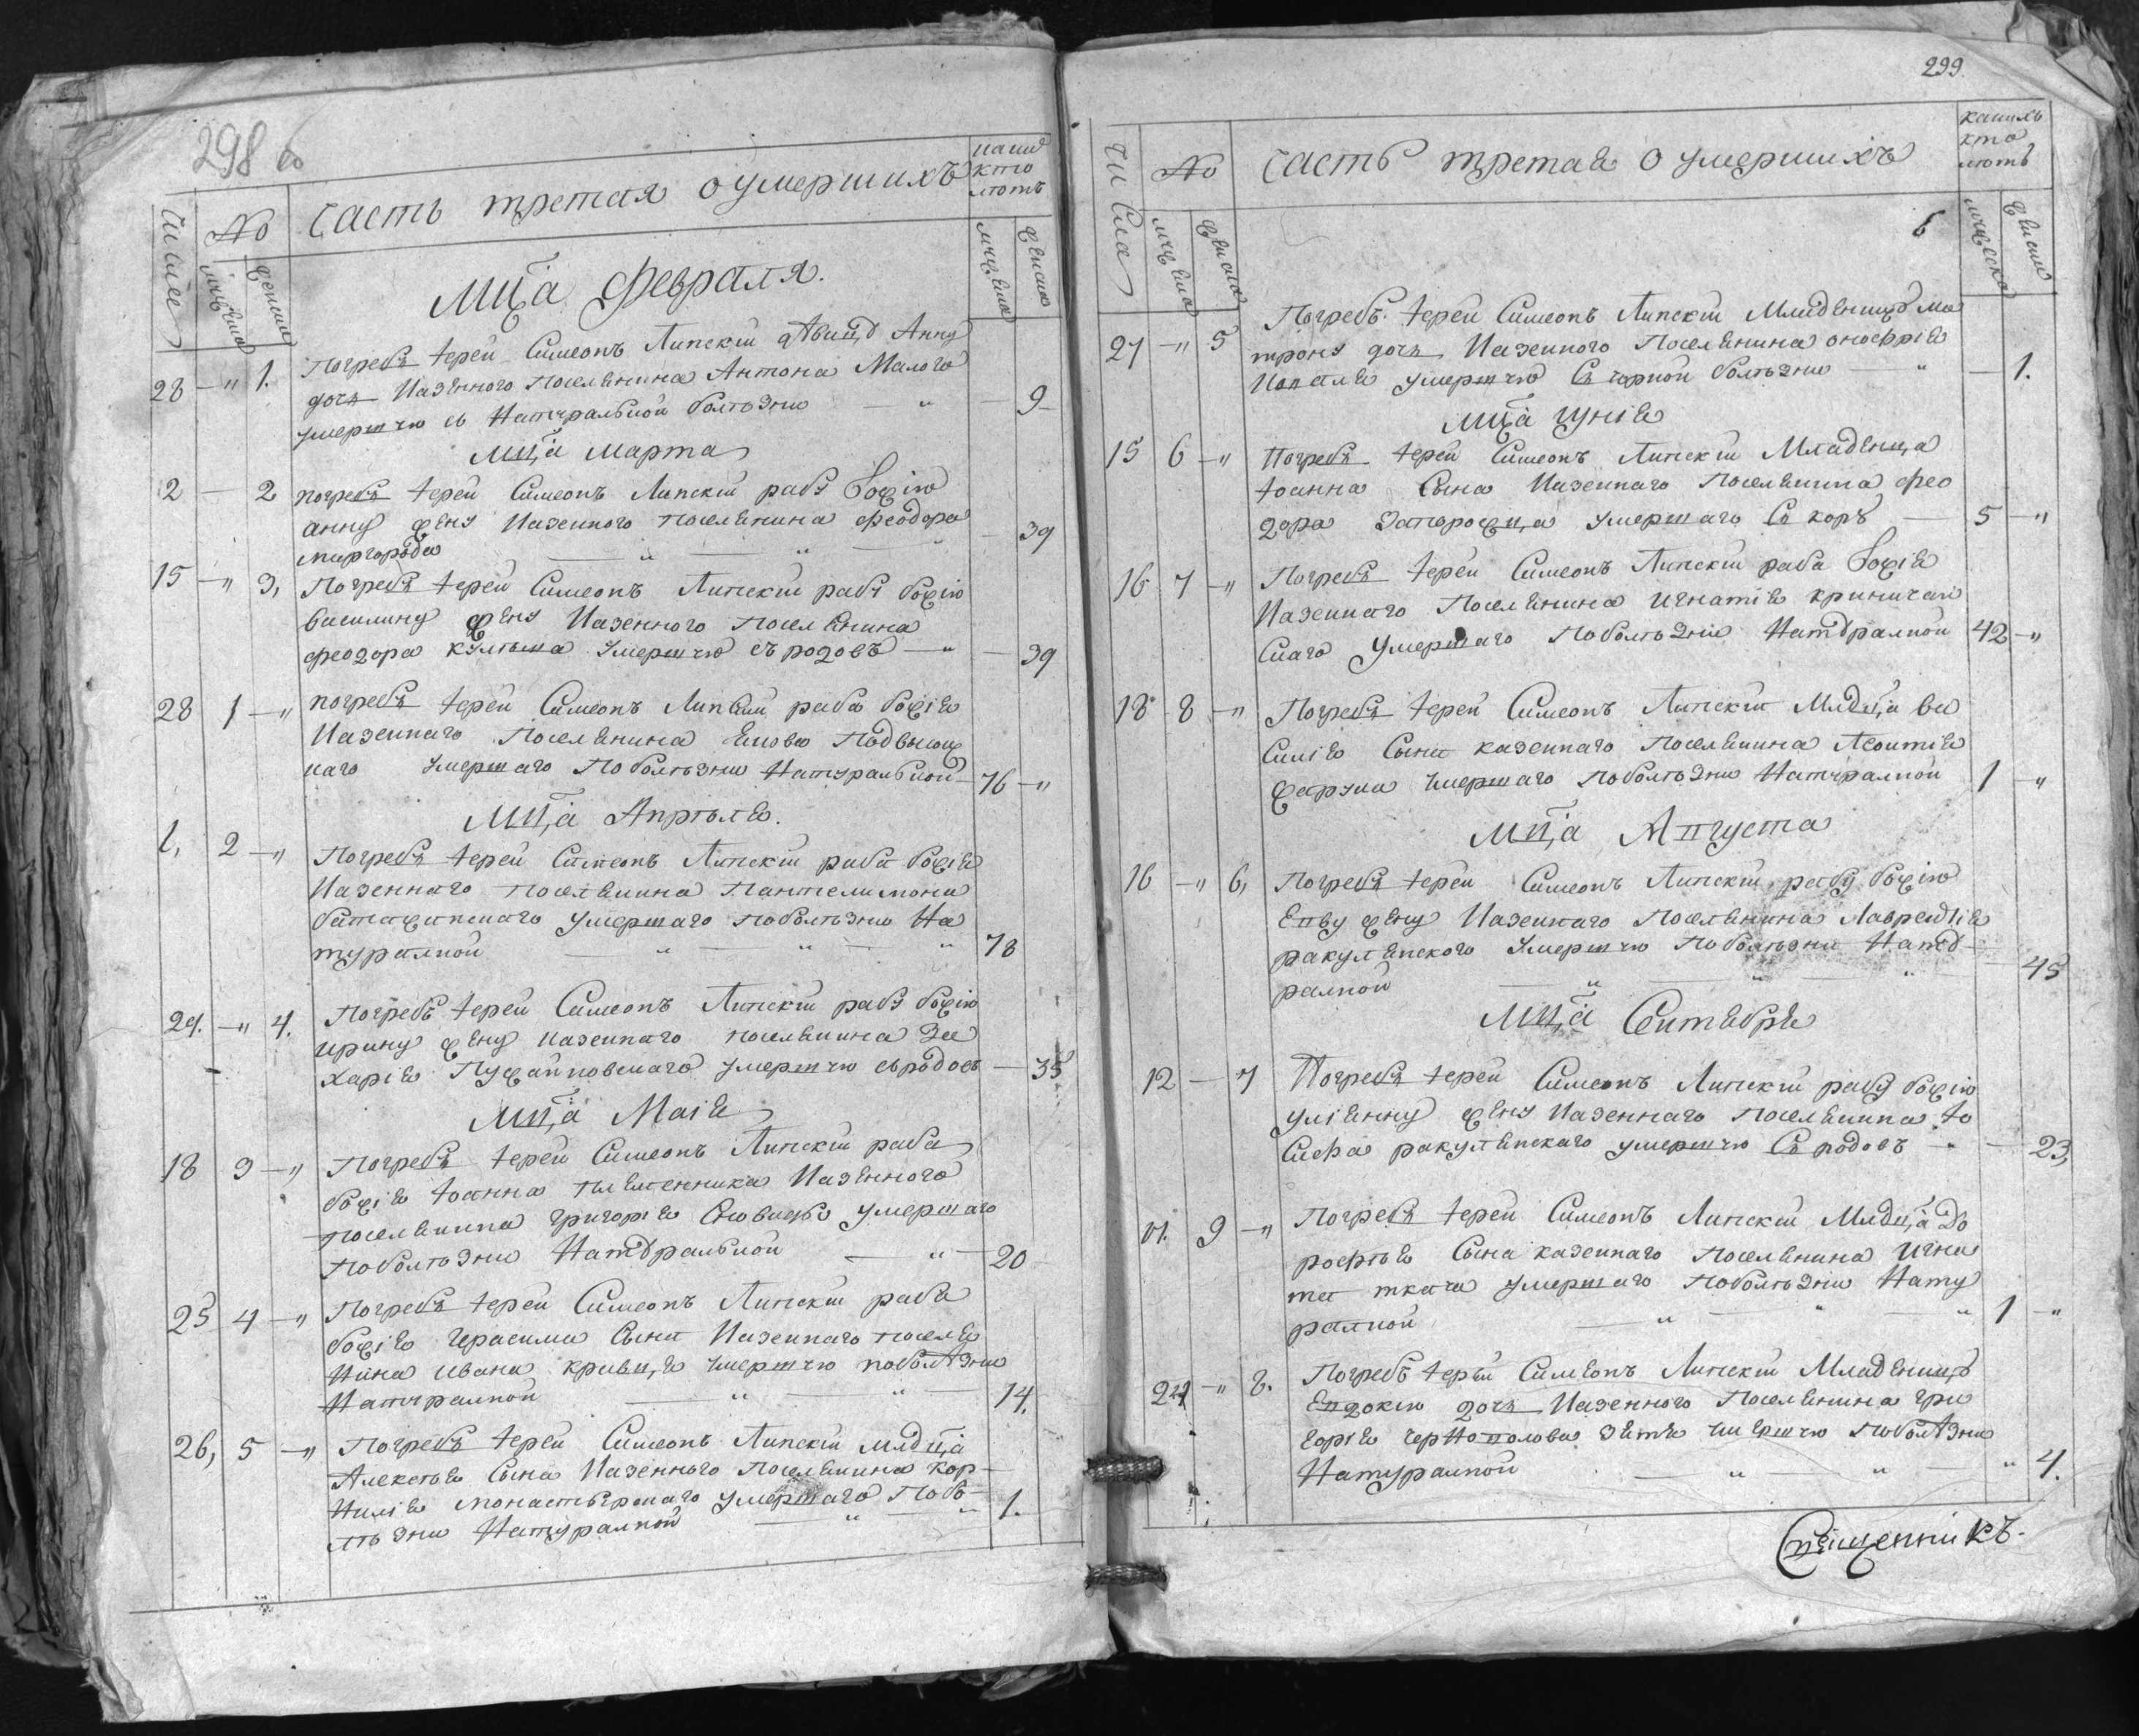 298 б
числе
№
часть третая о умершихъ
каши
кто
лютъ
Мца Февраля.
28 — " 1. Погребъ іерей Симеонъ Липскій двицъ Анну
дочъ Казенного поселянина Антона Малого
умершую съ Натуральной болѣзни — " — 9
Мца Марта
2 — 2 погребъ іерей Симеонъ Липскій рабу Божію
анну жену Казенного поселянина Феодора
миргорода — " — " — 39
15 — " 3, Погребъ іерей Симеонъ Липскій рабу божію
василину жену Казенного поселянина
феодора умершую съ родовъ — " — 39
28 1 — " погребъ іерей Симеонъ Липскій раба божія
Казеннаго поселянина
наго умершаго поболѣзни Натуральной — 76 — "
Мца Апрѣля.
1, 2 — " Погребъ іерей Симеонъ Липскій раба божія
Казеннаго поселянина Пантелимона
умершаго поболѣзни На
туралной — " — " — " 78
29. — " 4. Погребъ іерей Симеонъ Липскій рабу божію
ирину жену казеннаго поселянина За
харія умершую съродовъ — 35
Мца Маія
18 3 — " Погребъ іерей Симеонъ Липскій раба
божія Іоанна племенника Казенного
поселянина григорія умершаго
поболѣзни Натуральной — " — 20
25 4 — " Погребъ іерей Симеонъ Липскій раба
божія Герасима Сына Казеннаго поселя
нина Ивана умершую поболѣзни
Натуралной — " — " — 14.
26, 5 — " Погребъ іерей Симеонъ Липскій млдца
Алексѣя Сына Казенного поселянина кор-
нилія монастырскаго умершаго Побо-
лѣзни Натуралной — " — " 1.
299
числа
№
часть третая о умершихъ
кашихъ
кто
лютъ
27 — " 5 Погребъ іерей Симеонъ Липскій Младеницъ ма
трону дочъ Казенного Поселянина онофрія
умершую Съ чорной болѣзни — " — 1.
Мца іунія
15 6 — " Погребъ іерей Симеонъ Липскій Младенца
Іоанна Сына Казеннаго Поселянина фео
дора Запорожца умершаго Съ коръ — 5 — "
16 7 — " Погребъ іерей Симеонъ Липскій раба Божія
Казеннаго Поселянина игнатія криничан
скаго умершаго Поболѣзни Натуралной 42 — "
18 8 — " Погребъ іерей Симеонъ Липскій Млдца ва
силія Сына казеннаго поселянина Леонтія
умершаго поболѣзни Натуралной 1 — "
Мца Августа
16 — " 6, Погребъ іерей Симеонъ Липскій рабу божію
Евву жену Казеннаго Поселянина Лаврентія
ракулянского умершую Поболѣзни Нату-
ралной — " — " — " 45
Мца Сентября
12 — 7 Погребъ іерей Симеонъ Липскій рабу божію
уліянну жену Казеннаго Поселянина Іо
сифа ракулянскаго умершую Съ родовъ " — 23,
9 — " Погребъ іерей Симеонъ Липскій Млдца До
рофѣя Сына казеннаго Поселянина Игна
та ткача умершаго Поболѣзни Нату
ралной — " — " — " 1 — "
24 — " 8. Погребъ іерей Симеонъ Липскій Младеницъ
Евдокію дочъ Казенного Поселянина гри
горія зятя умершую Поболѣзни
Натуралной — " — " " 4.
Священникъ.